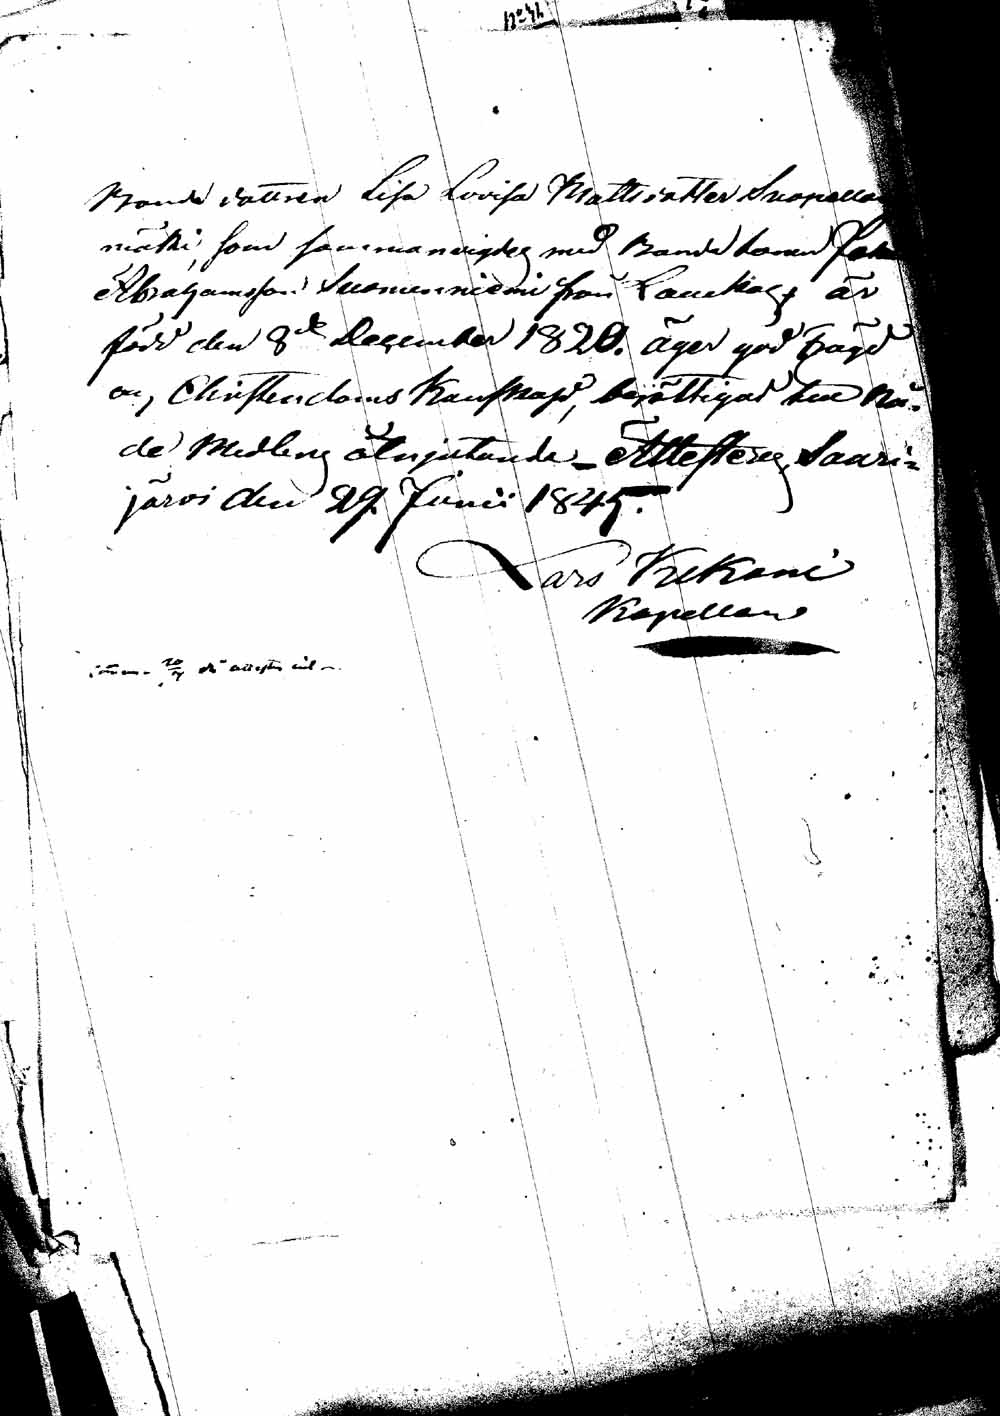 No 41.
Bonde dottren Lisa Lovisa Mattsdotter Snapella
mäki, som sammanvigdes med Bonde sonen Joha
Abrahamsson Suomenniemi från Laukas, är
född den 8de December 1820. äger god Frägd
och Christendoms Kunskap, berättigad till Nå-
de Medlens åtnjutande – Attesteras, Saari-
järvi den 29. Junii 1845.
Lars Kekoni
Kapellan